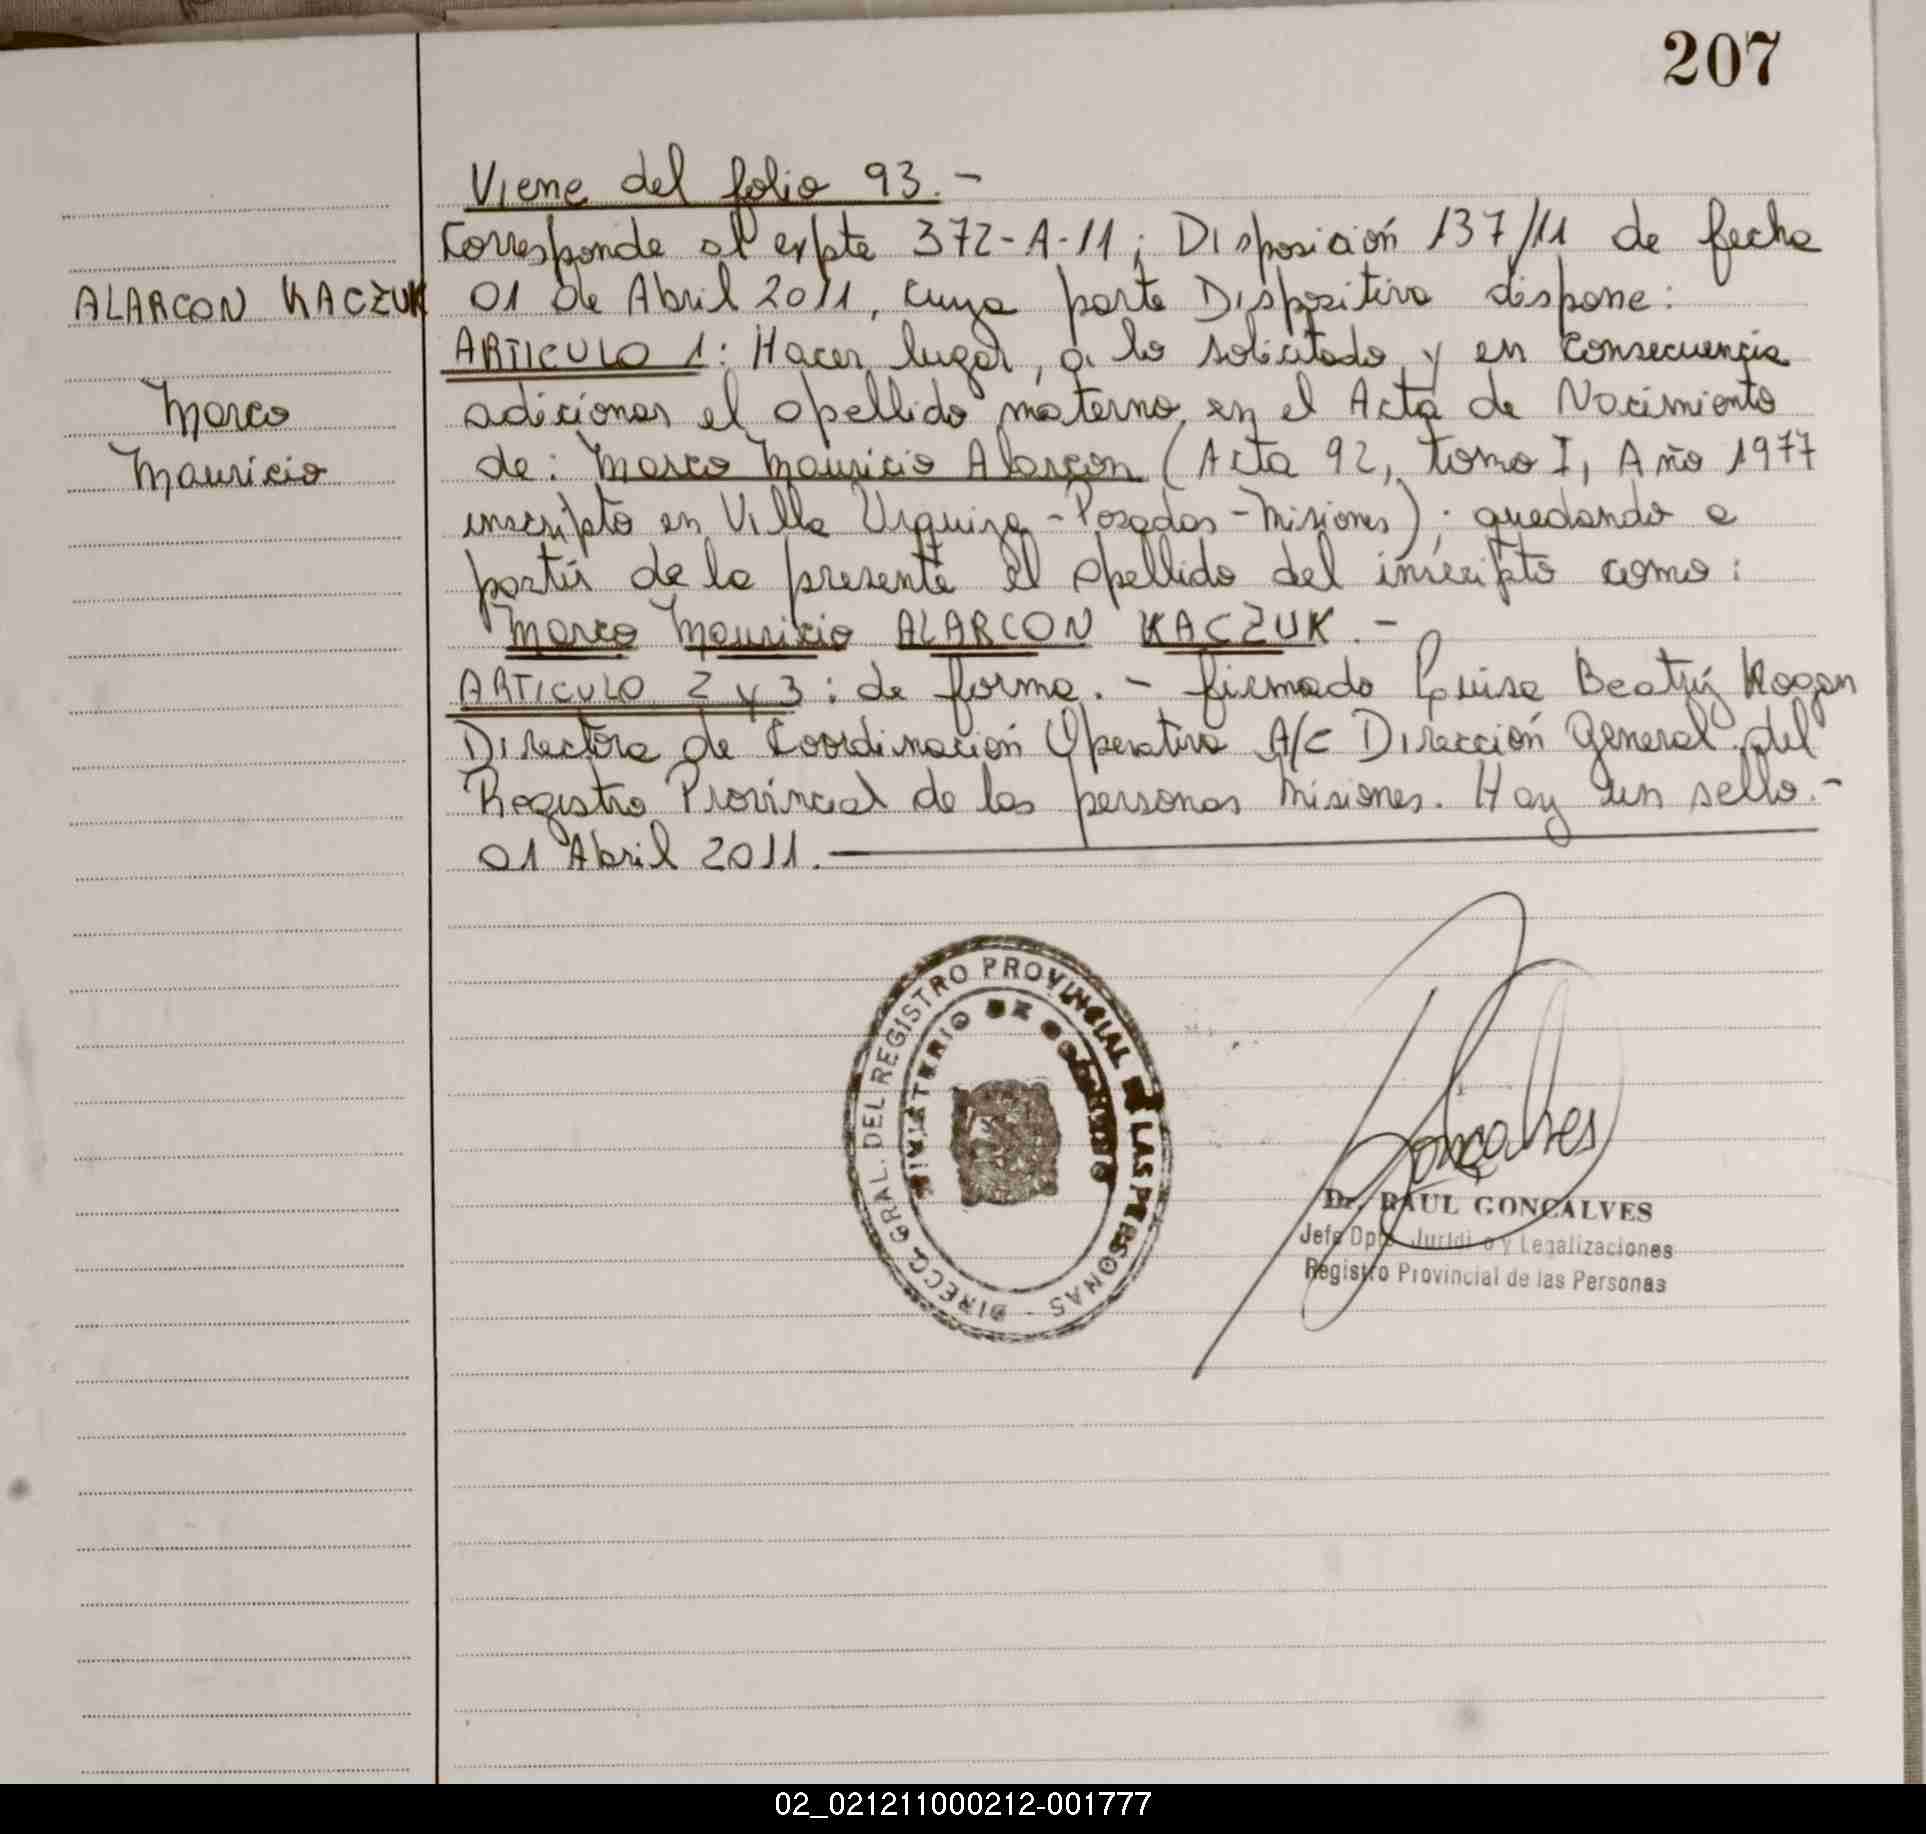 207
Viene del folio 93.-
Corresponde al expte 372-A-11; Disposición 137/11 de fecha
ALARCON KACZUK
01 de Abril 2011, cuya parte Dispositiva dispone:
ARTICULO 1: Hacer lugar, a lo solicitado y en consecuencia
Marco
adicionar el apellido materno en el Acta de Nacimiento
Mauricio
de: Marco Mauricio Alarcon (Acta 92, tomo I, Año 1977
inscripto en Villa Urquiza-Posadas-Misiones); quedando a
partir de la presente el apellido del inscripto como:
Marco Mauricio ALARCON KACZUK.-
ARTICULO 2 y 3: de forma.- firmado Luisa Beatriz Kogan
Directora de Coordinación Operativa A/C Dirección General del
Registro Provincial de las personas Misiones. Hay un sello.-
01 Abril 2011.
DIRECC. GRAL. DEL REGISTRO PROVINCIAL DE LAS PERSONAS -
MINISTERIO DE GOBIERNO
Goncalves
Dr. RAUL GONCALVES
Jefe Dpto. Juridico y Legalizaciones
Registro Provincial de las Personas
02_021211000212-001777